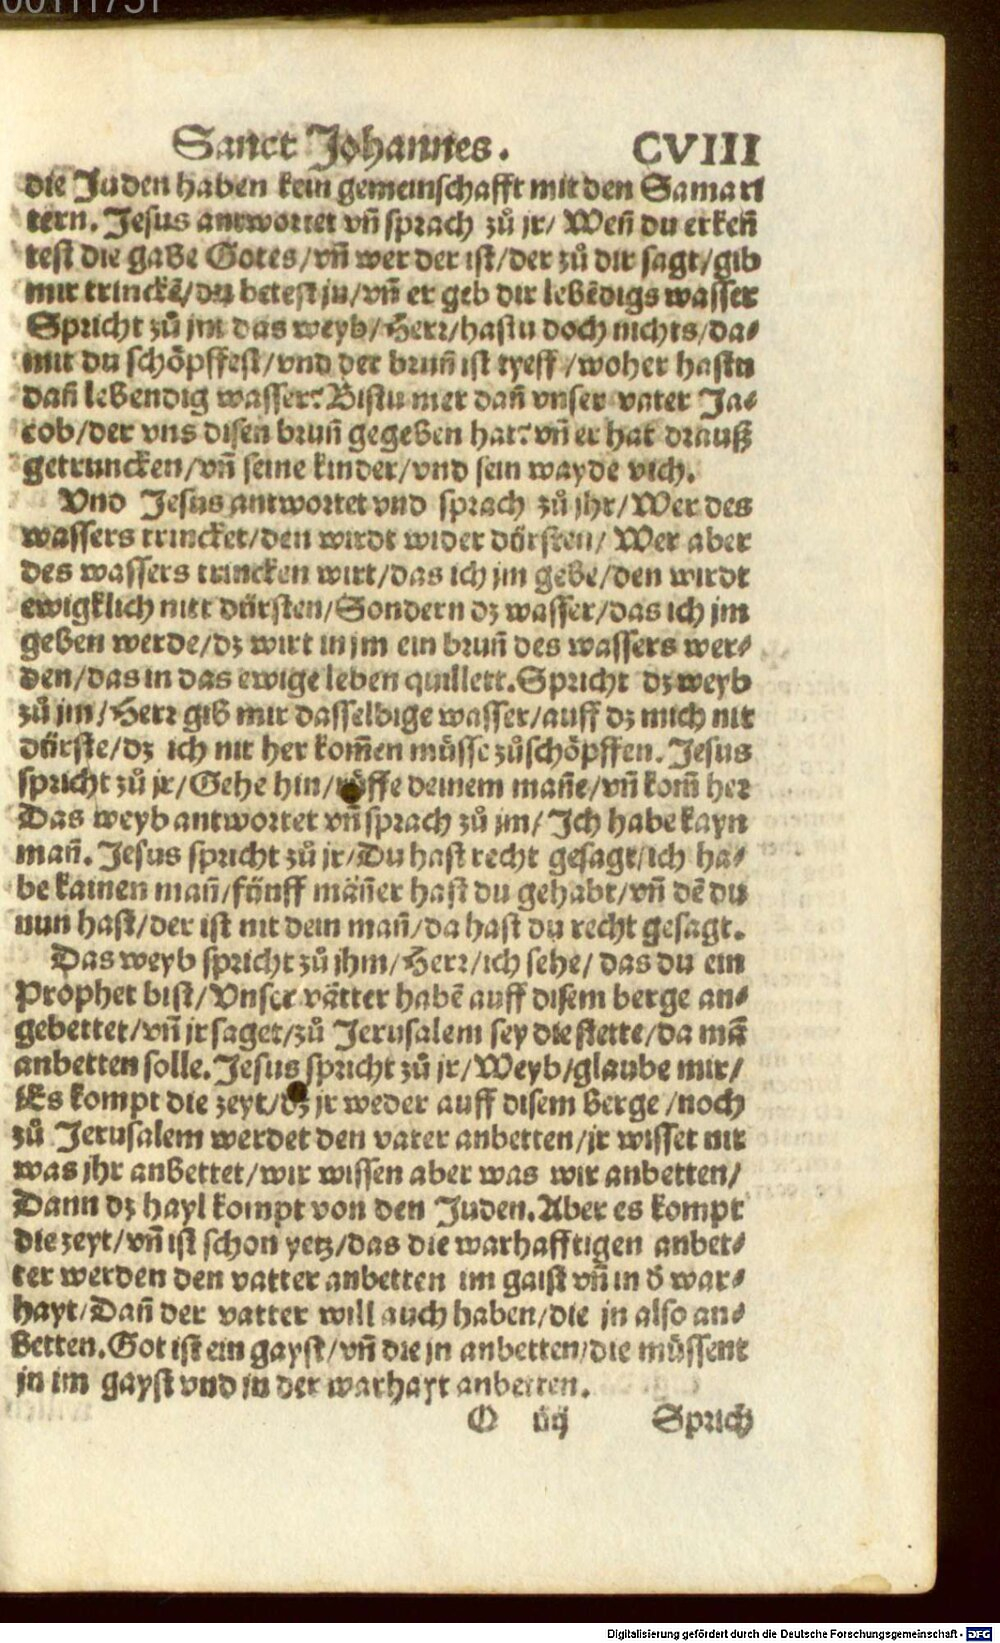 00111751
Sanct Johannes. CVIII
die Juden haben kein gemeinschafft mit den Samari
tern. Jesus antwortet vñ sprach zů jr/ Weñ du erkeñ
test die gabe Gotes/vñ wer der ist/der zů dir sagt/gib
mir trinckē/du betest jn/vñ er geb dir lebēdigs wasser
Spricht zů jm das weyb/Herr/hastu doch nichts/da-
mit du schöpffest/vnd der bruñ ist tyeff/woher hastu
dañ lebendig wasser? Bistu mer dañ vnser vater Ja-
cob/der vns disen bruñ gegeben hat? vñ er hat drauß
getruncken/vñ seine kinder/vnd sein wayde vich.
Vnd Jesus antwortet vnd sprach zů jhr/Wer des
wassers trincket/den wirdt wider dürsten/ Wer aber
des wassers trincken wirt/das ich jm gebe/den wirdt
ewigklich nitt dürsten/Sondern dz wasser/das ich jm
geben werde/dz wirt in jm ein bruñ des wassers wer-
den/das in das ewige leben quillett. Spricht dz weyb
zů jm/Herr gib mir dasselbige wasser/auff dz mich nit
dürste/dz ich nit her kom̄en müsse zůschöpffen. Jesus
spricht zů jr/Gehe hin/růffe deinem mañe/vñ kom̄ her
Das weyb antwortet vñ sprach zů jm/ Ich habe kayn
mañ. Jesus spricht zů jr/Du hast recht gesagt/ich ha-
be kainen mañ/fünff mäñer hast du gehabt/vñ dē du
nun hast/der ist nit dein mañ/da hast du recht gesagt.
Das weyb spricht zů jhm/Herr/ich sehe/das du ein
Prophet bist/Vnser vätter habē auff disem berge an-
gebettet/vñ jr saget/zů Jerusalem sey die stette/da mā
anbetten solle. Jesus spricht zů jr/Weyb/glaube mir/
Es kompt die zeyt/dz jr weder auff disem berge/noch
zů Jerusalem werdet den vater anbetten/jr wisset nit
was jhr anbettet/wir wissen aber was wir anbetten/
Dann dz hayl kompt von den Juden. Aber es kompt
die zeyt/vñ ist schon yetz/das die warhafftigen anbet-
ter werden den vatter anbetten im gaist vñ in d̄ war-
hayt/Dañ der vatter will auch haben/die jn also an-
betten. Got ist ein gayst/vñ die jn anbetten/die müssent
jn im gayst vnd in der warhayt anbetten.
O iiij Sprich
Digitalisierung gefördert durch die Deutsche Forschungsgemeinschaft - DFG